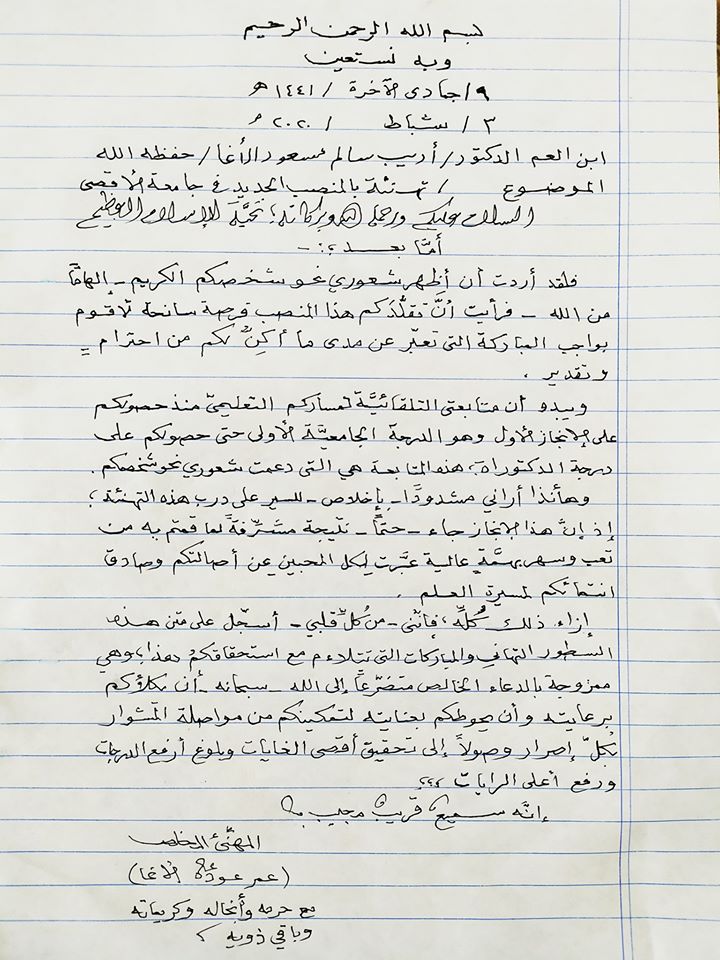 بسم الله الرحمن الرحيم
وبه نستعين
٩/ جمادى الآخرة / ١٤٤١ هـ
٣ / شباط / ٢٠٢٠ م
ابن العم الدكتور/ أديب سالم مسعود الأغا/ حفظه الله
الموضوع / تهنئة بالمنصب الجديد في جامعة الأقصى
السلام عليكم ورحمة الله وبركاته؛ تحيَّة الإسلام العظيم
أمَّا بعـد ؛؛ -
فلقد أردت أن أظهر شعوري نحو شخصكم الكريم - إلهامًا
من الله - فرأيت أنَّ تقلُّدكم هذا المنصب فرصة سانحة لأقوم
بواجب المباركة التي تعبّر عن مدى ما أكنّ لكم من احترام =
وتقدير .
ويبدو أن متابعتي التلقائيَّة لمساركم التعليميّ منذ حصولكم
على الإنجاز الأول وهو الدرجة الجامعيَّة الأولى حتى حصولكم على
درجة الدكتوراة، هذه المتابعة هي التي دعمت شعوري نحو شخصكم.
وهأنذا أراني مشدودًا - بإخلاص - للسير على درب هذه التهنئة؛
إذ إنَّ هذا الإنجاز جاء - حتمًا - نتيجة مشرِّفةً لما قمتم به من
تعب وسهر بهمَّةٍ عالية عبَّرت لكل المحبين عن أصالتكم وصادق
انتمائكم لمسيرة العلم .
إزاء ذلك كُلِّه، فإنَّني - من كُلِّ قلبي - أسجّل على متن هذه
السطور التهاني والمباركات التي تتلاءم مع استحقاقكم هذا؛ وهي
ممزوجة بالدعاء الخالص متضرّعًا إلى الله - سبحانه - أن يكلأكم
برعايته وأن يحوطكم بعنايته لتمكينكم من مواصلة المشوار
بكلّ إصرار وصولاً إلى تحقيق أقصى الغايات وبلوغ أرفع الدرجات
ورفع أعلى الرايات ؛؛؛
إنَّه سميع قريب مجيب
المهنّئ المخلص
(عمر عودة الأغا)
مع حرمه وأنجاله وكريماته
وباقي ذويه